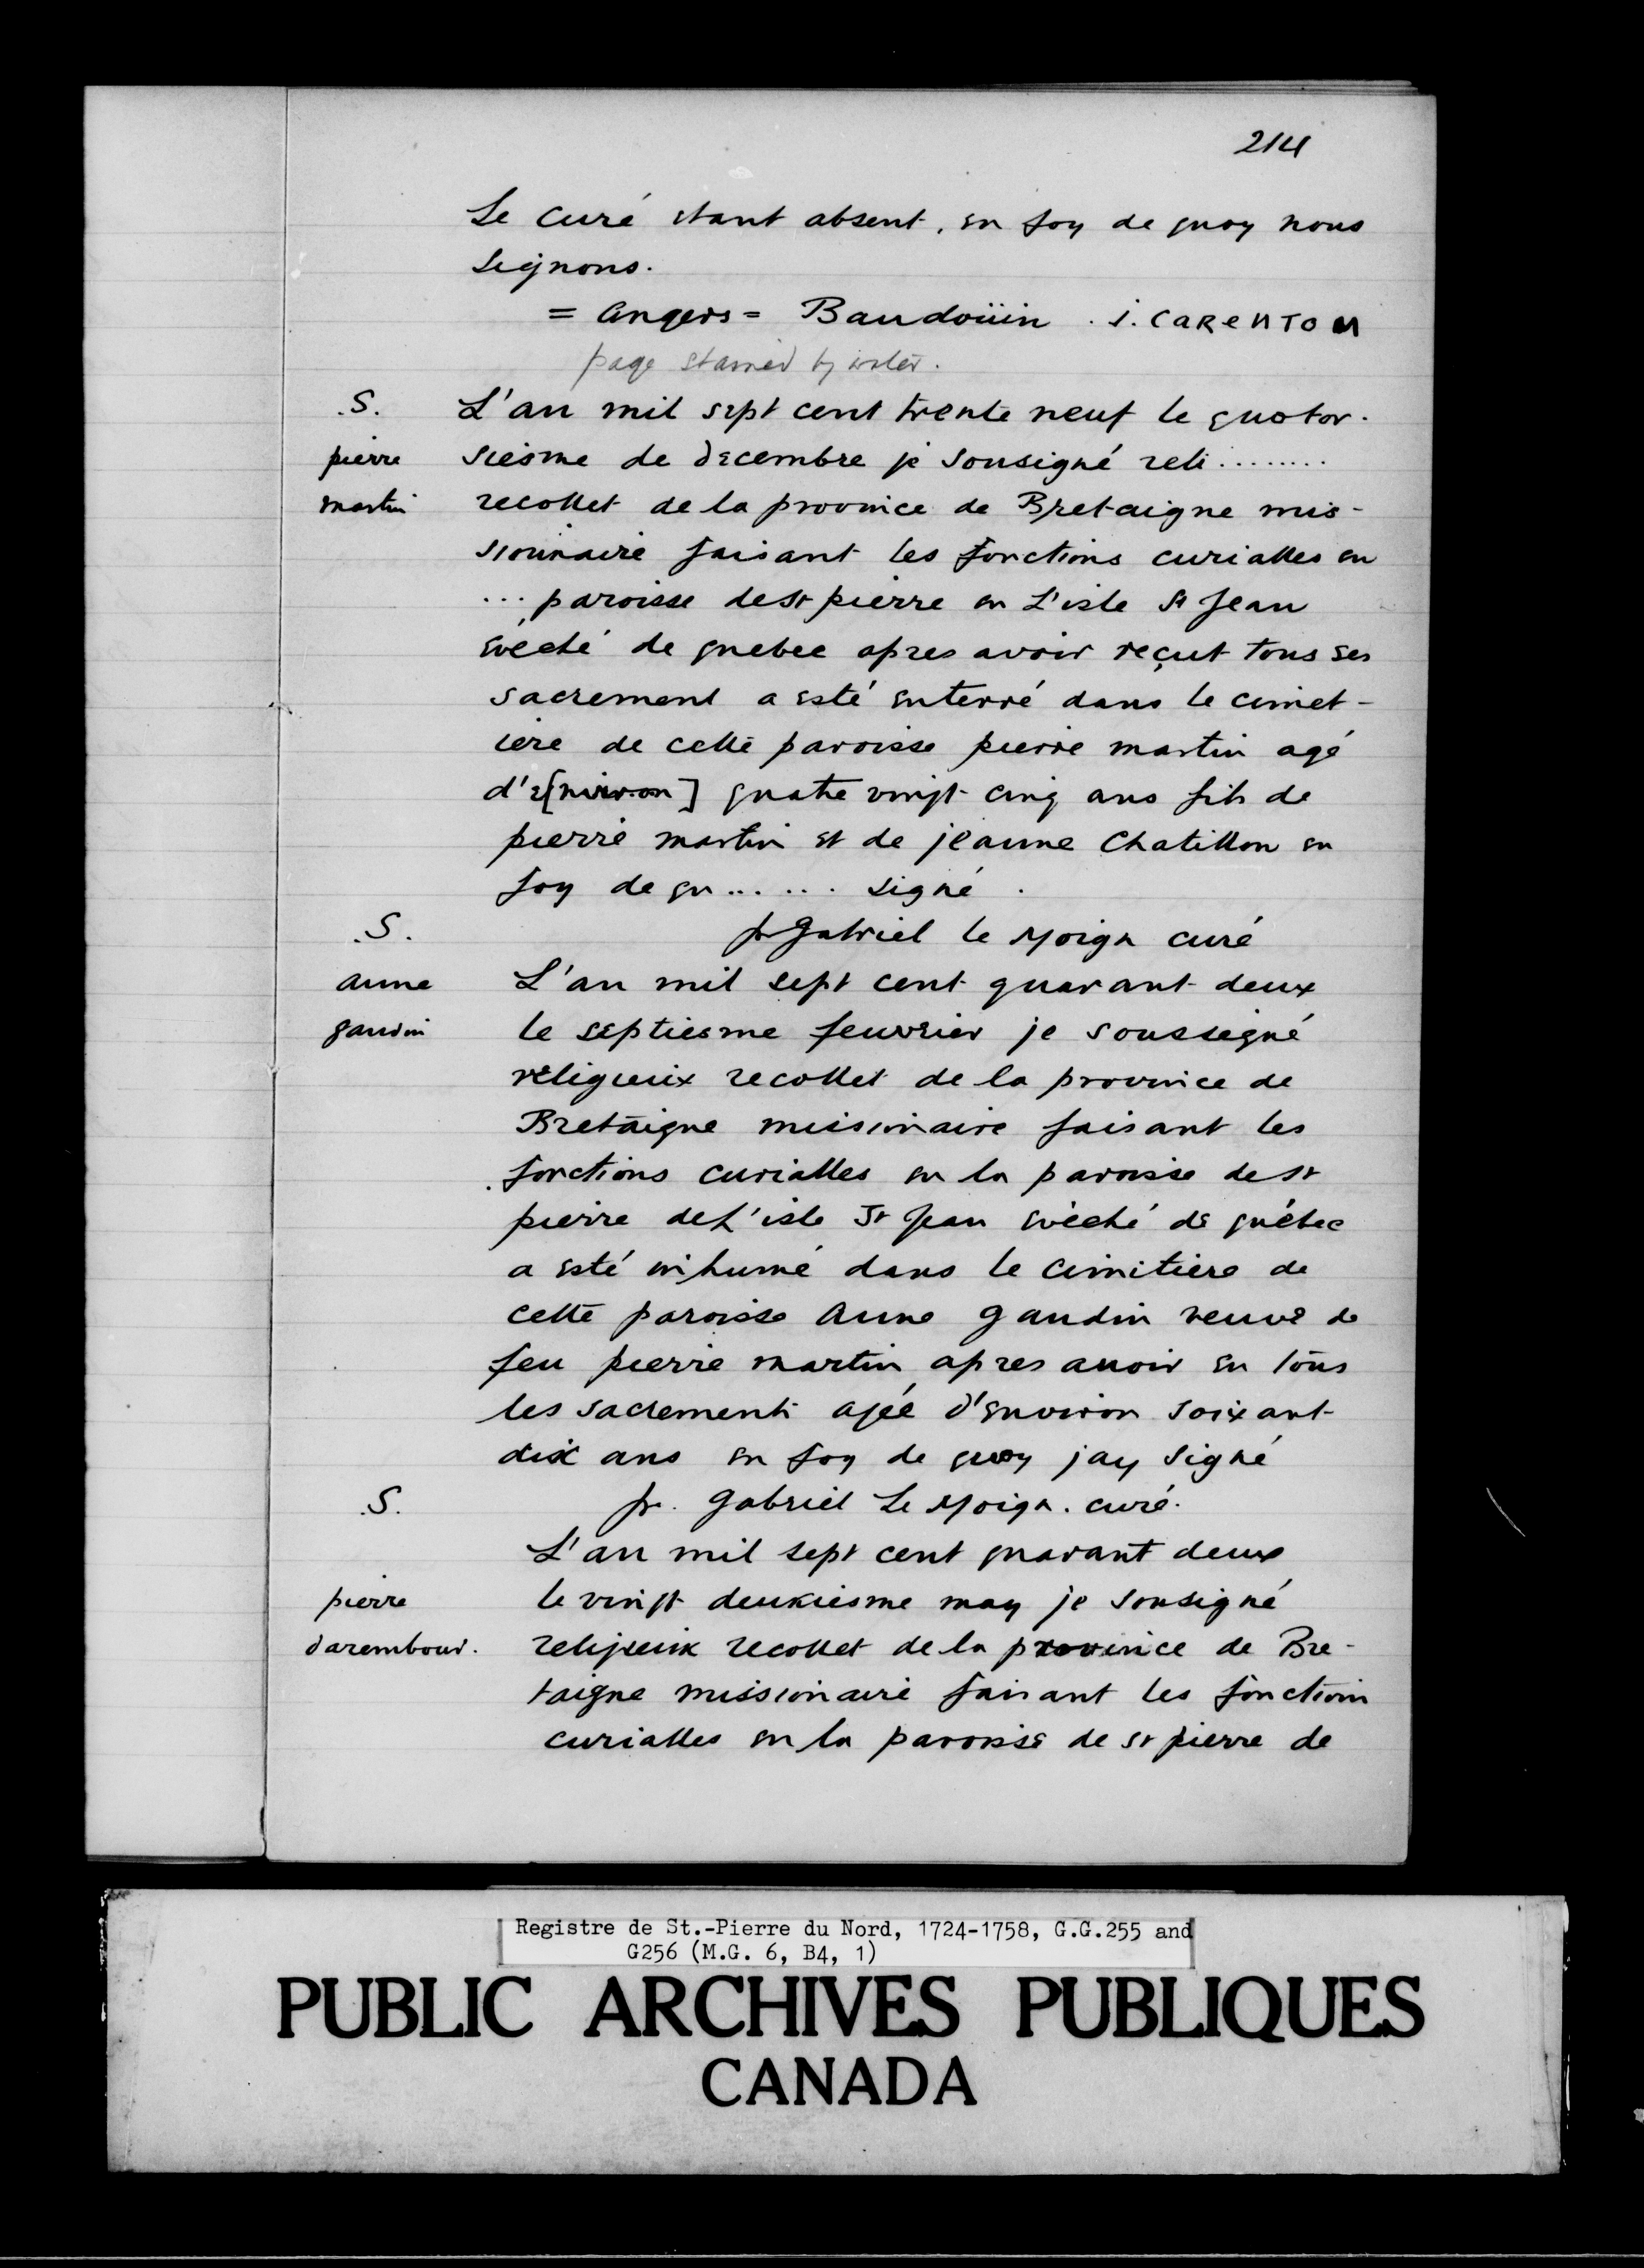 214
Le curé etant absent, en foy de quoy nous
signons.
= Angers = Baudoüin . i. CAReNTON
page stained by water.
.S. L'an mil sept cent trente neuf le quator-
pierre siesme de decembre je sousigné reli........
martin recollet de la province de Bretaigne mis-
sionnaire faisant les fonctions curialles en
... paroisse de st pierre en L'isle St Jean
evéché de quebec apres avoir reçut tous ses
sacrement a esté enterré dans le cimet-
iere de cette paroisse pierre martin agé
d'e[nviron] quatre vingt cinq ans fils de
pierre martin et de jeanne Chatillon en
foy de qu...... signé .
.S. fr gabriel le Moign curé
anne L'an mil sept cent quarant deux
gaudin le septiesme feuvrier je soussigné
religieux recollet de la province de
Bretaigne missionaire faisant les
fonctions curialles en la paroisse de st
pierre de L'isle St Jean evèché de québec
a esté inhumé dans le cimitiere de
cette paroisse Anne gaudin veuve de
feu pierre martin apres auoir eu tous
les sacrements agée d'environ soixant
dix ans en foy de quoy jay signé
.S. fr. gabriel Le Moign. curé.
L'an mil sept cent quarant deux
pierre le vingt deuxiesme may je sousigné
darembour. religieux recollet de la province de Bre-
taigne missionaire faisant les fonction
curialles en la paroisse de st pierre de
Registre de St.-Pierre du Nord, 1724-1758, G.G.255 and
G256 (M.G. 6, B4, 1)
PUBLIC ARCHIVES PUBLIQUES
CANADA